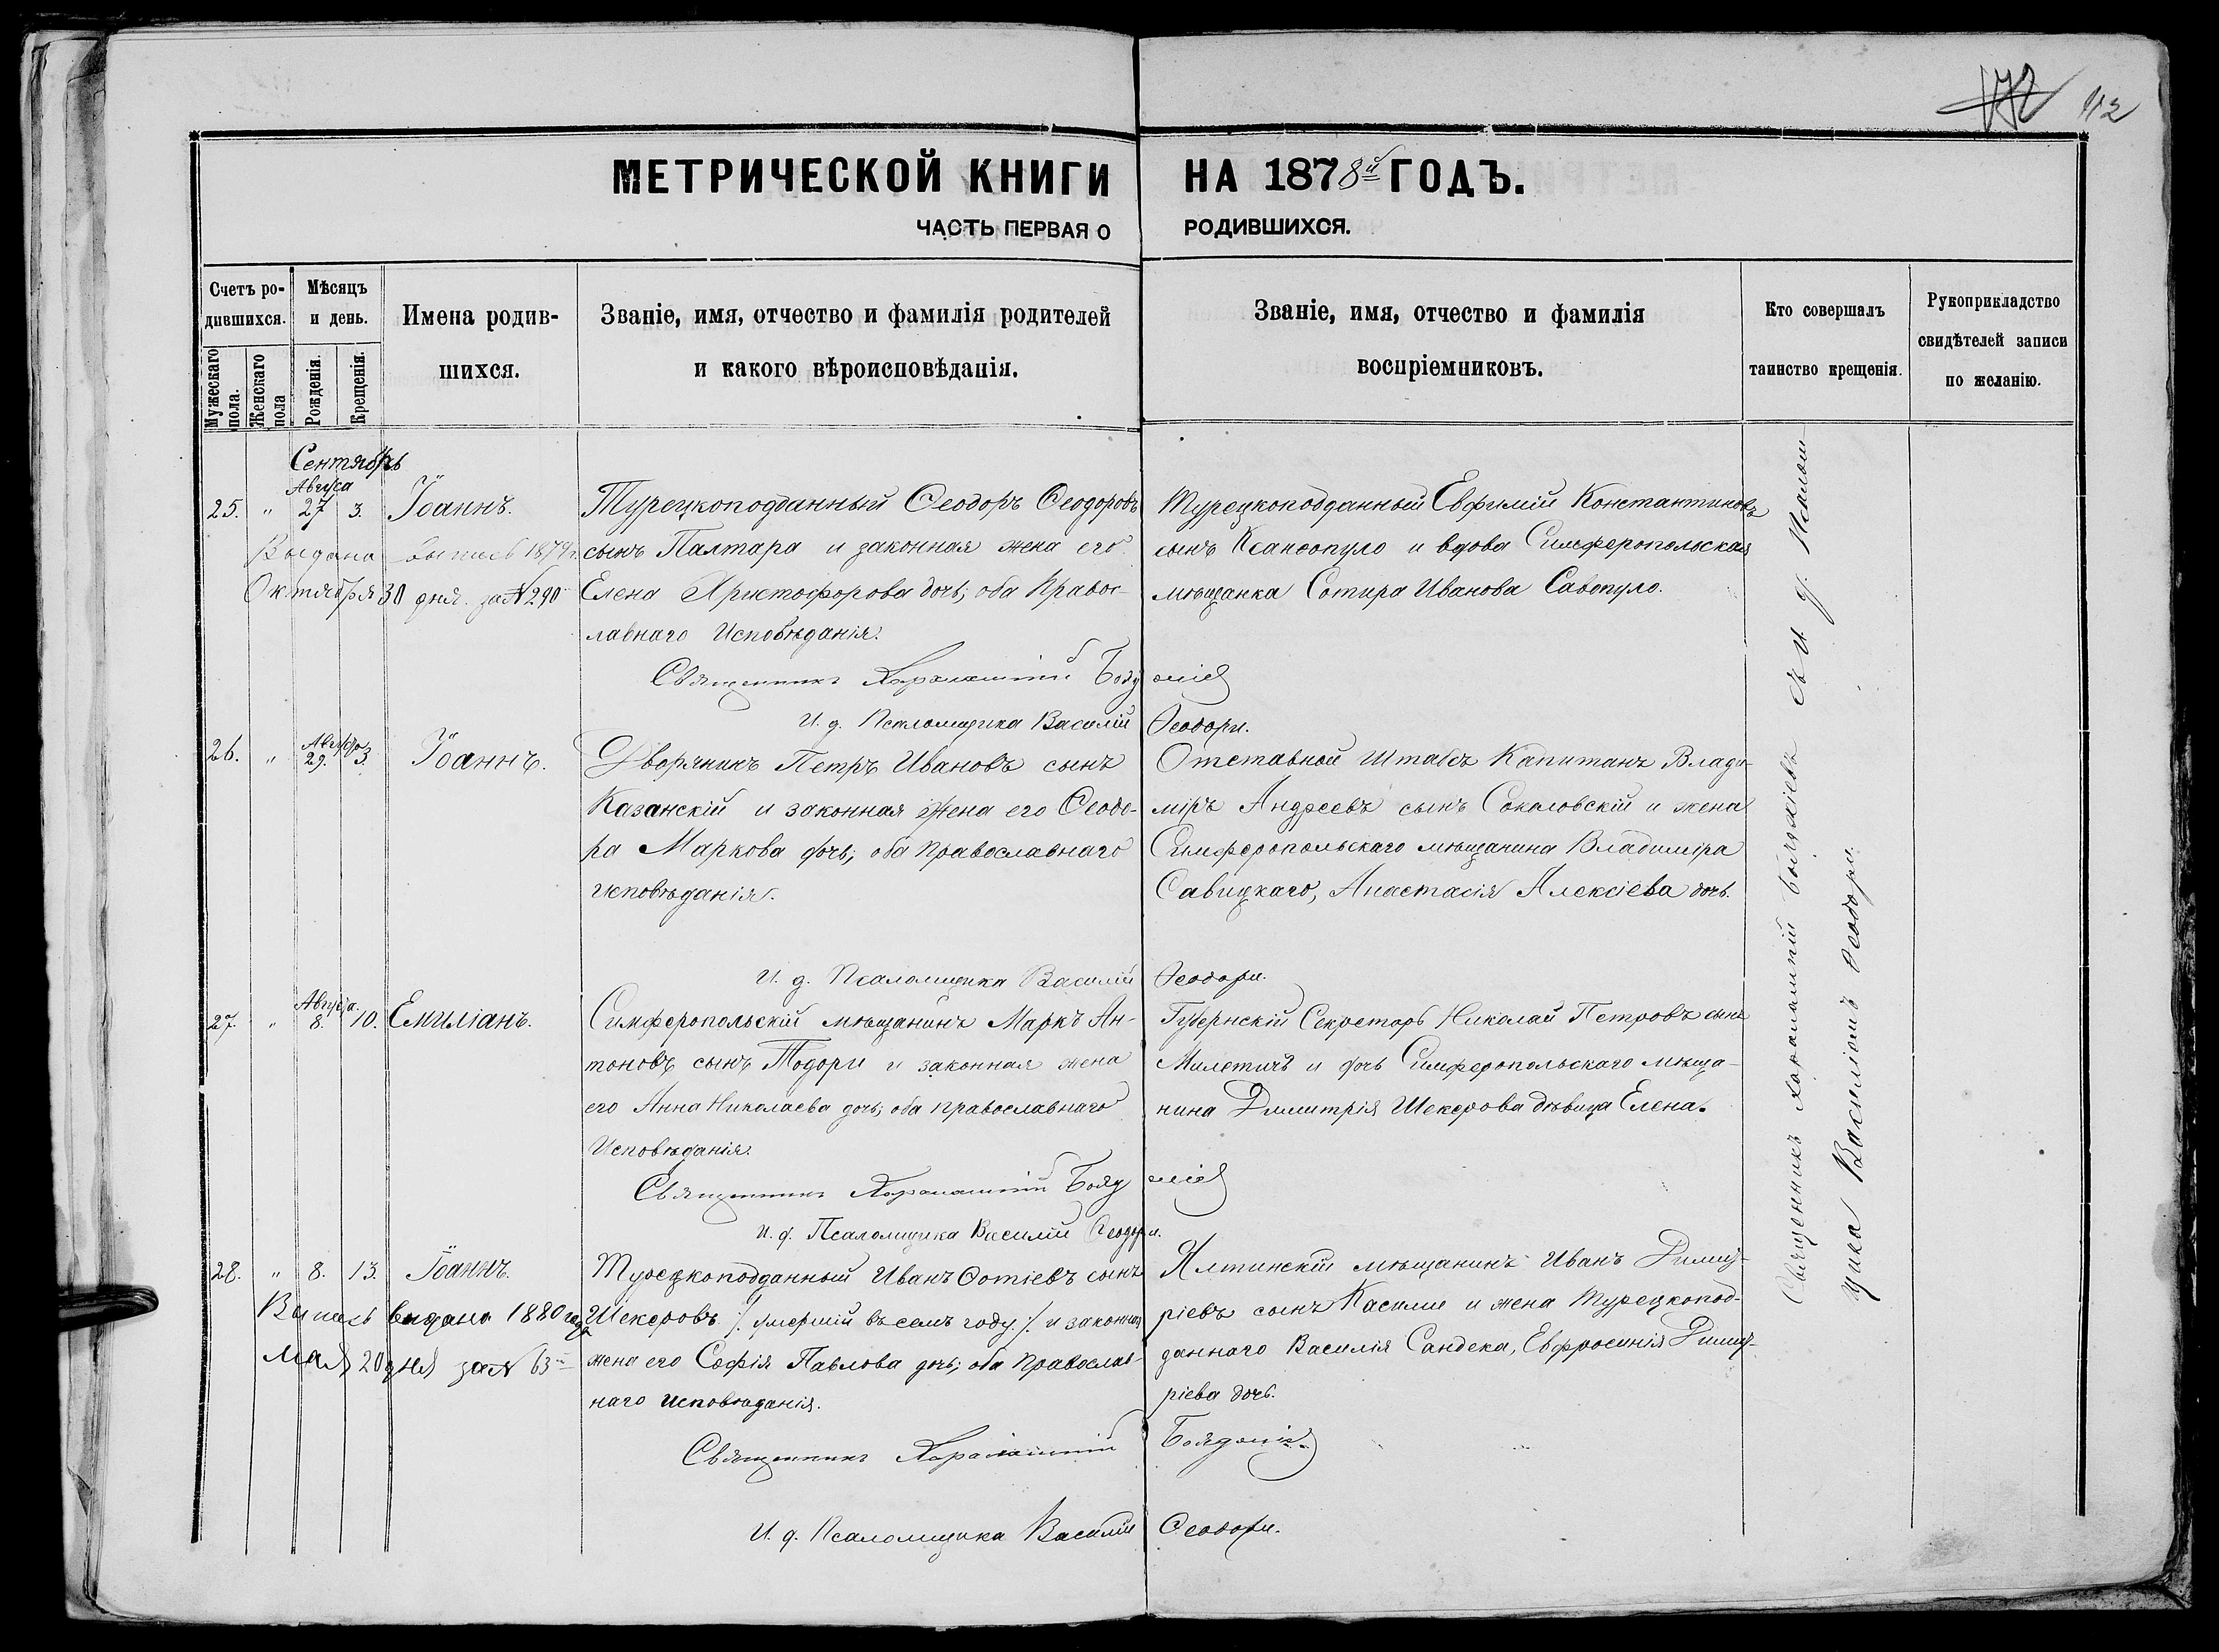 112
МЕТРИЧЕСКОЙ КНИГИ НА 1878й ГОДЪ.
ЧАСТЬ ПЕРВАЯ О РОДИВШИХСЯ.
Счетъ ро-
дившихся.
Мужескаго пола.
Женскаго пола
Мѣсяцъ
и день.
Рожденія.
Крещенія.
Имена родив-
шихся.
Званіе, имя, отчество и фамилія родителей
и какого вѣроисповѣданія.
Званіе, имя, отчество и фамилія
воспріемниковъ.
Кто совершалъ
таинство крещенія.
Рукоприкладство
свидѣтелей записи
по желанію.
Сентябрь
Августа
25. " 27 3. Іоаннъ.
Выдана выпись 1879 г.
Октября 30 дня. за № 290
Турецкоподданный Ѳеодоръ Ѳеодоровъ
сынъ Палтара и законная жена его
Елена Христофорова дочь, оба Правос-
лавнаго Исповѣданія.
Турецкоподданный Евфимій Константиновъ
сынъ Ксансопуло и вдова Симферопольская
мѣщанка Сотира Иванова Савопуло.
Священникъ Харалампій
И. д. Псаломщика Василій Ѳеодори.
26. " Августа 29. 3. Іоаннъ.
Дворянинъ Петръ Ивановъ сынъ
Казанскій и законная жена его Ѳеодо-
ра Маркова дочь; оба православнаго
исповѣданія.
Отставной Штабсъ Капитанъ Влади-
міръ Андреевъ сынъ Соколовскій и жена
Симферопольскаго мѣщанина Владиміра
Савицкаго, Анастасія Алексіева дочь.
И. д. Псаломщика Василій Ѳеодори.
27. " Августа 8. 10. Емиліанъ.
Симферопольскій мѣщанинъ Маркъ Ан-
тоновъ сынъ Тодори и законная жена
его Анна Николаева дочь; оба православнаго
Исповѣданія.
Губернскій Секретарь Николай Петровъ сынъ
Милетичъ и дочь Симферопольскаго мѣща-
нина Димитрія Шекерова дѣвица Елена.
Священникъ Харалампій
И. д. Псаломщика Василій Ѳеодори.
28. " 8. 13. Іоаннъ.
Выпись выдана 1880 года
мая 20 дня за № 63
Турецкоподданный Иванъ Фотіевъ сынъ
Шекеровъ /. умершій въ семъ году ./ и законная
жена его Софія Павлова дочь; оба православ-
наго исповѣданія.
Ялтинскій мѣщанинъ Иванъ Димит-
ріевъ сынъ Касиме и жена Турецкопод-
даннаго Василія Сандека, Евфросинія Димит-
ріева дочь.
Священникъ Харалампій
И. д. Псаломщика Василій Ѳеодори.
Священникъ Харалампій съ И. д. Псалом-
щика Василіемъ Ѳеодори.